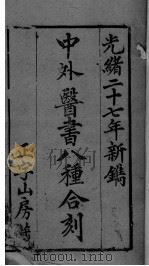 光緒二十七年新鐫
中外醫書八種合刻
山房
mtoou.info